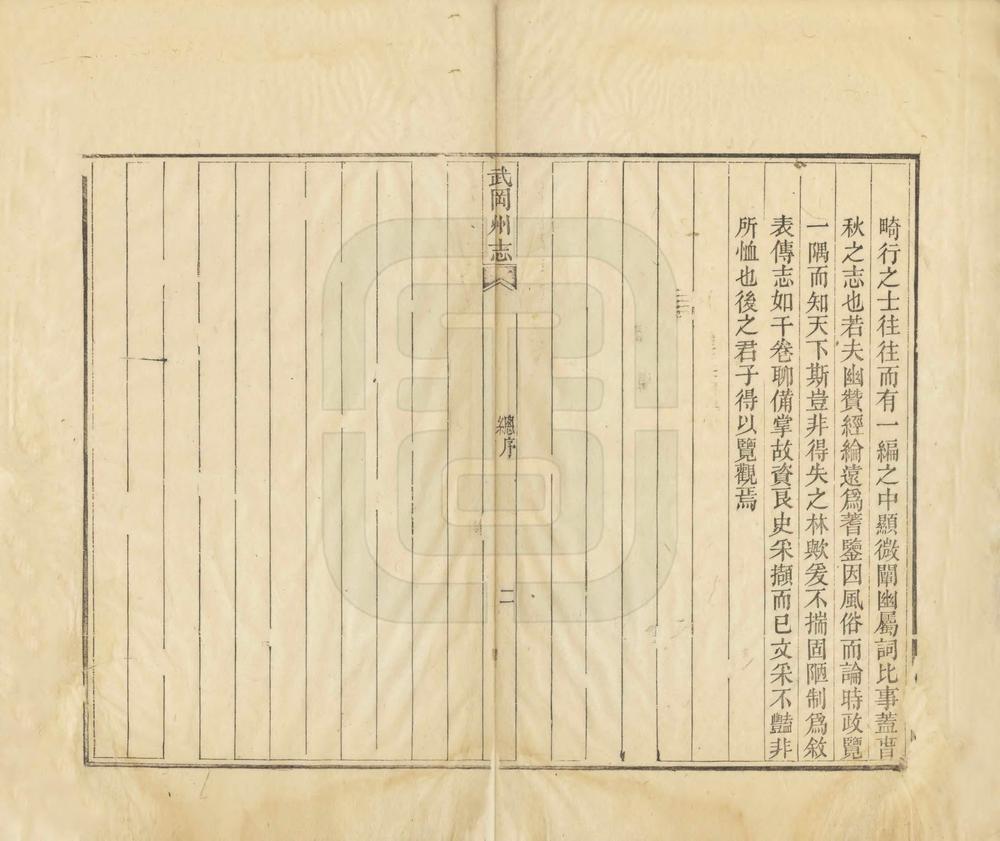 畸行之士往往而有一編之中顯微闡幽屬詞比事蓋春
秋之志也若夫幽贊經綸遠爲蓍鑒因風俗而論時政覽
一隅而知天下斯豈非得失之林歟爰不揣固陋制爲敘
表傳志如干卷聊備掌故資良史采擷而已文采不豔非
所恤也後之君子得以覽觀焉
武岡州志
總序
二